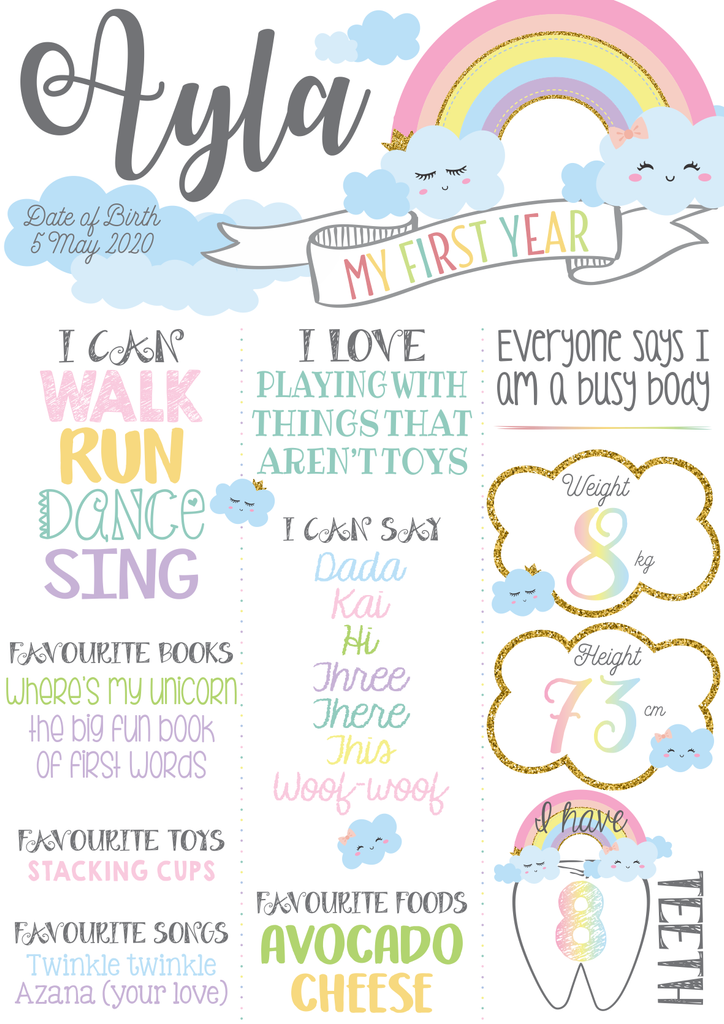 Ayla
Date of Birth
5 May 2020
MY FIRST YEAR
I CAN
WALK
RUN
DANCE
SING
FAVOURITE BOOKS
Where's my unicorn
the big fun book
of first words
FAVOURITE TOYS
STACKING CUPS
FAVOURITE SONGS
Twinkle twinkle
Azana (your love)
I LOVE
PLAYING WITH
THINGS THAT
AREN'T TOYS
I CAN SAY
Dada
Kai
Hi
Three
There
This
Woof-woof
FAVOURITE FOODS
AVOCADO
CHEESE
Everyone says I
am a busy body
Weight
8 kg
Height
73 cm
I have
8
TEETH